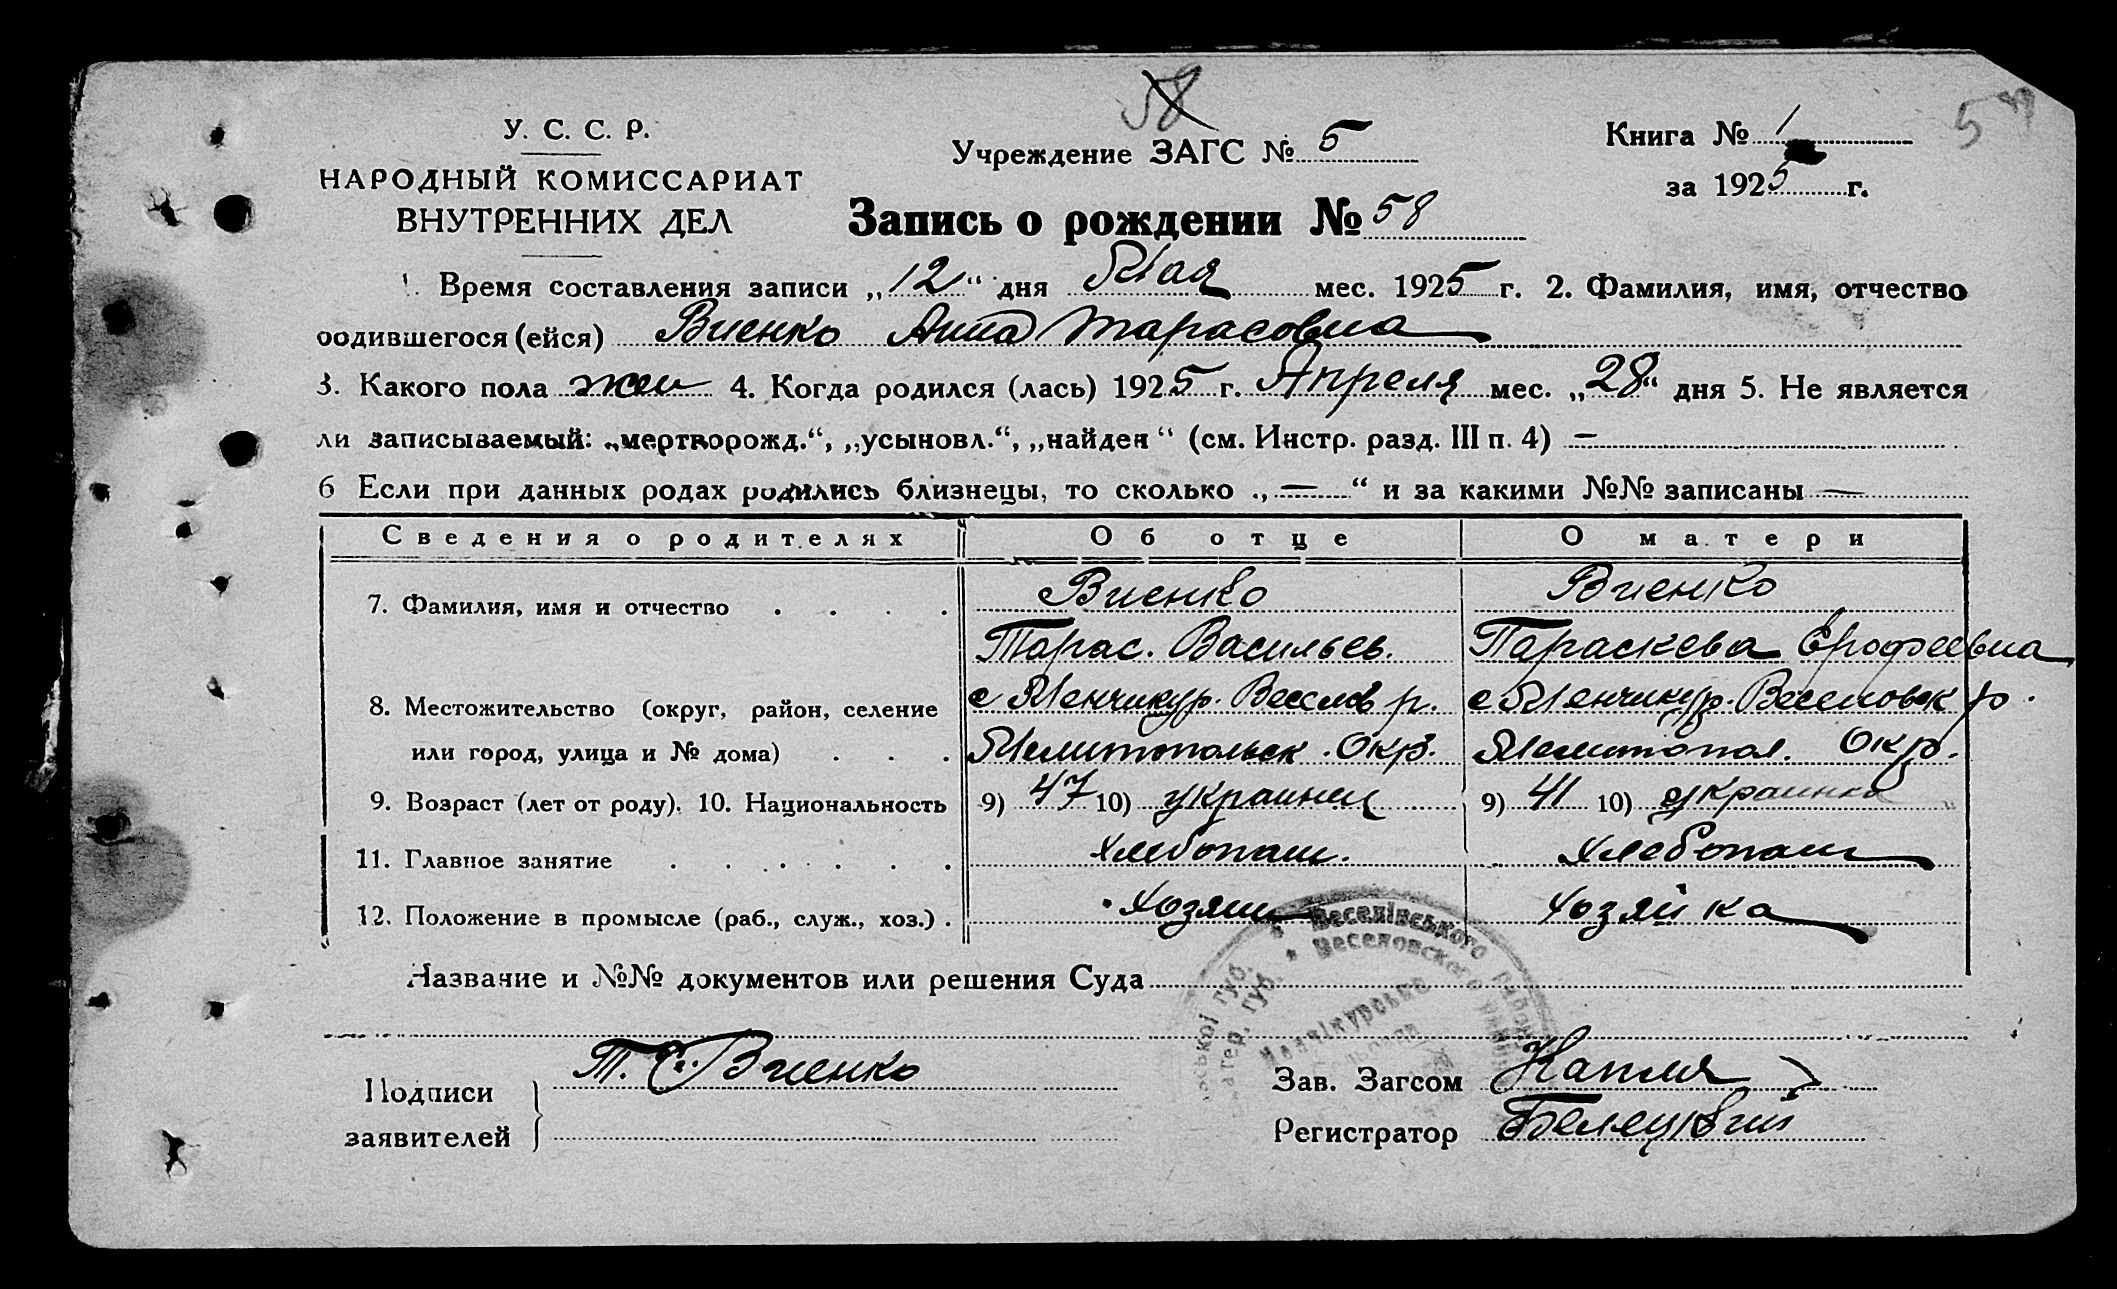 58
У. С. С. Р.
НАРОДНЫЙ КОМИССАРИАТ
ВНУТРЕННИХ ДЕЛ
Учреждение ЗАГС № 5
Книга № 1
за 1925 г.
Запись о рождении № 58
1. Время составления записи „12“ дня Мая мес. 1925 г. 2. Фамилия, имя, отчество
родившегося (ейся) Виенко Анна Тарасовна
3. Какого пола жен 4. Когда родился (лась) 1925 г. Апреля мес. „28“ дня 5. Не является
ли записываемый: „мертворожд.“, „усыновл.“, „найден“ (см. Инстр. разд. III п. 4) —
6 Если при данных родах родились близнецы, то сколько „—“ и за какими №№ записаны —
Сведения о родителях Об отце О матери
7. Фамилия, имя и отчество Виенко Виенко
Тарас. Васильев. Параскева Ерофеевна
8. Местожительство (округ, район, селение с Менчикур. Веселов р. с Менчикур. Веселовск р.
или город, улица и № дома) Мелитопольск. Окр. Мелитопол. Окр.
9. Возраст (лет от роду). 10. Национальность 9) 47 10) украинец 9) 41 10) украинка
11. Главное занятие Хлебопаш. Хлебопаш
12. Положение в промысле (раб., служ., хоз.) Хозяин Хозяйка
Веселівського
Веселовского
губ.
губ.
Название и №№ документов или решения Суда
Подписи
заявителей
Т. Виенко
Зав. Загсом
Регистратор Белецкий